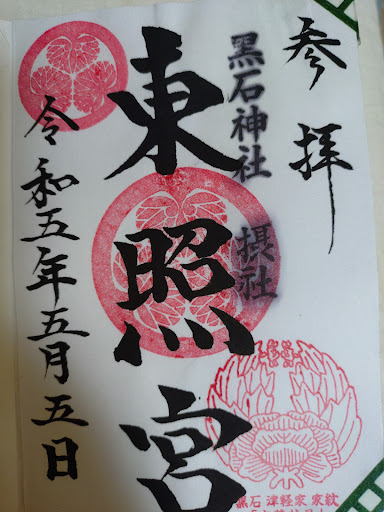 参拝
黒石神社 摂社
東照宮
令和五年五月五日
黒石 津軽家 家紋